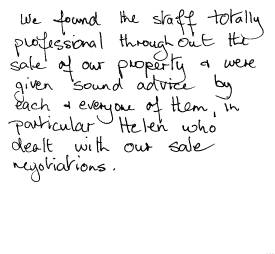 We found the staff totally
professional throughout the
sale of our property & were
given sound advice by
each & everyone of them, in
particular Helen who
dealt with our sale
negotiations.